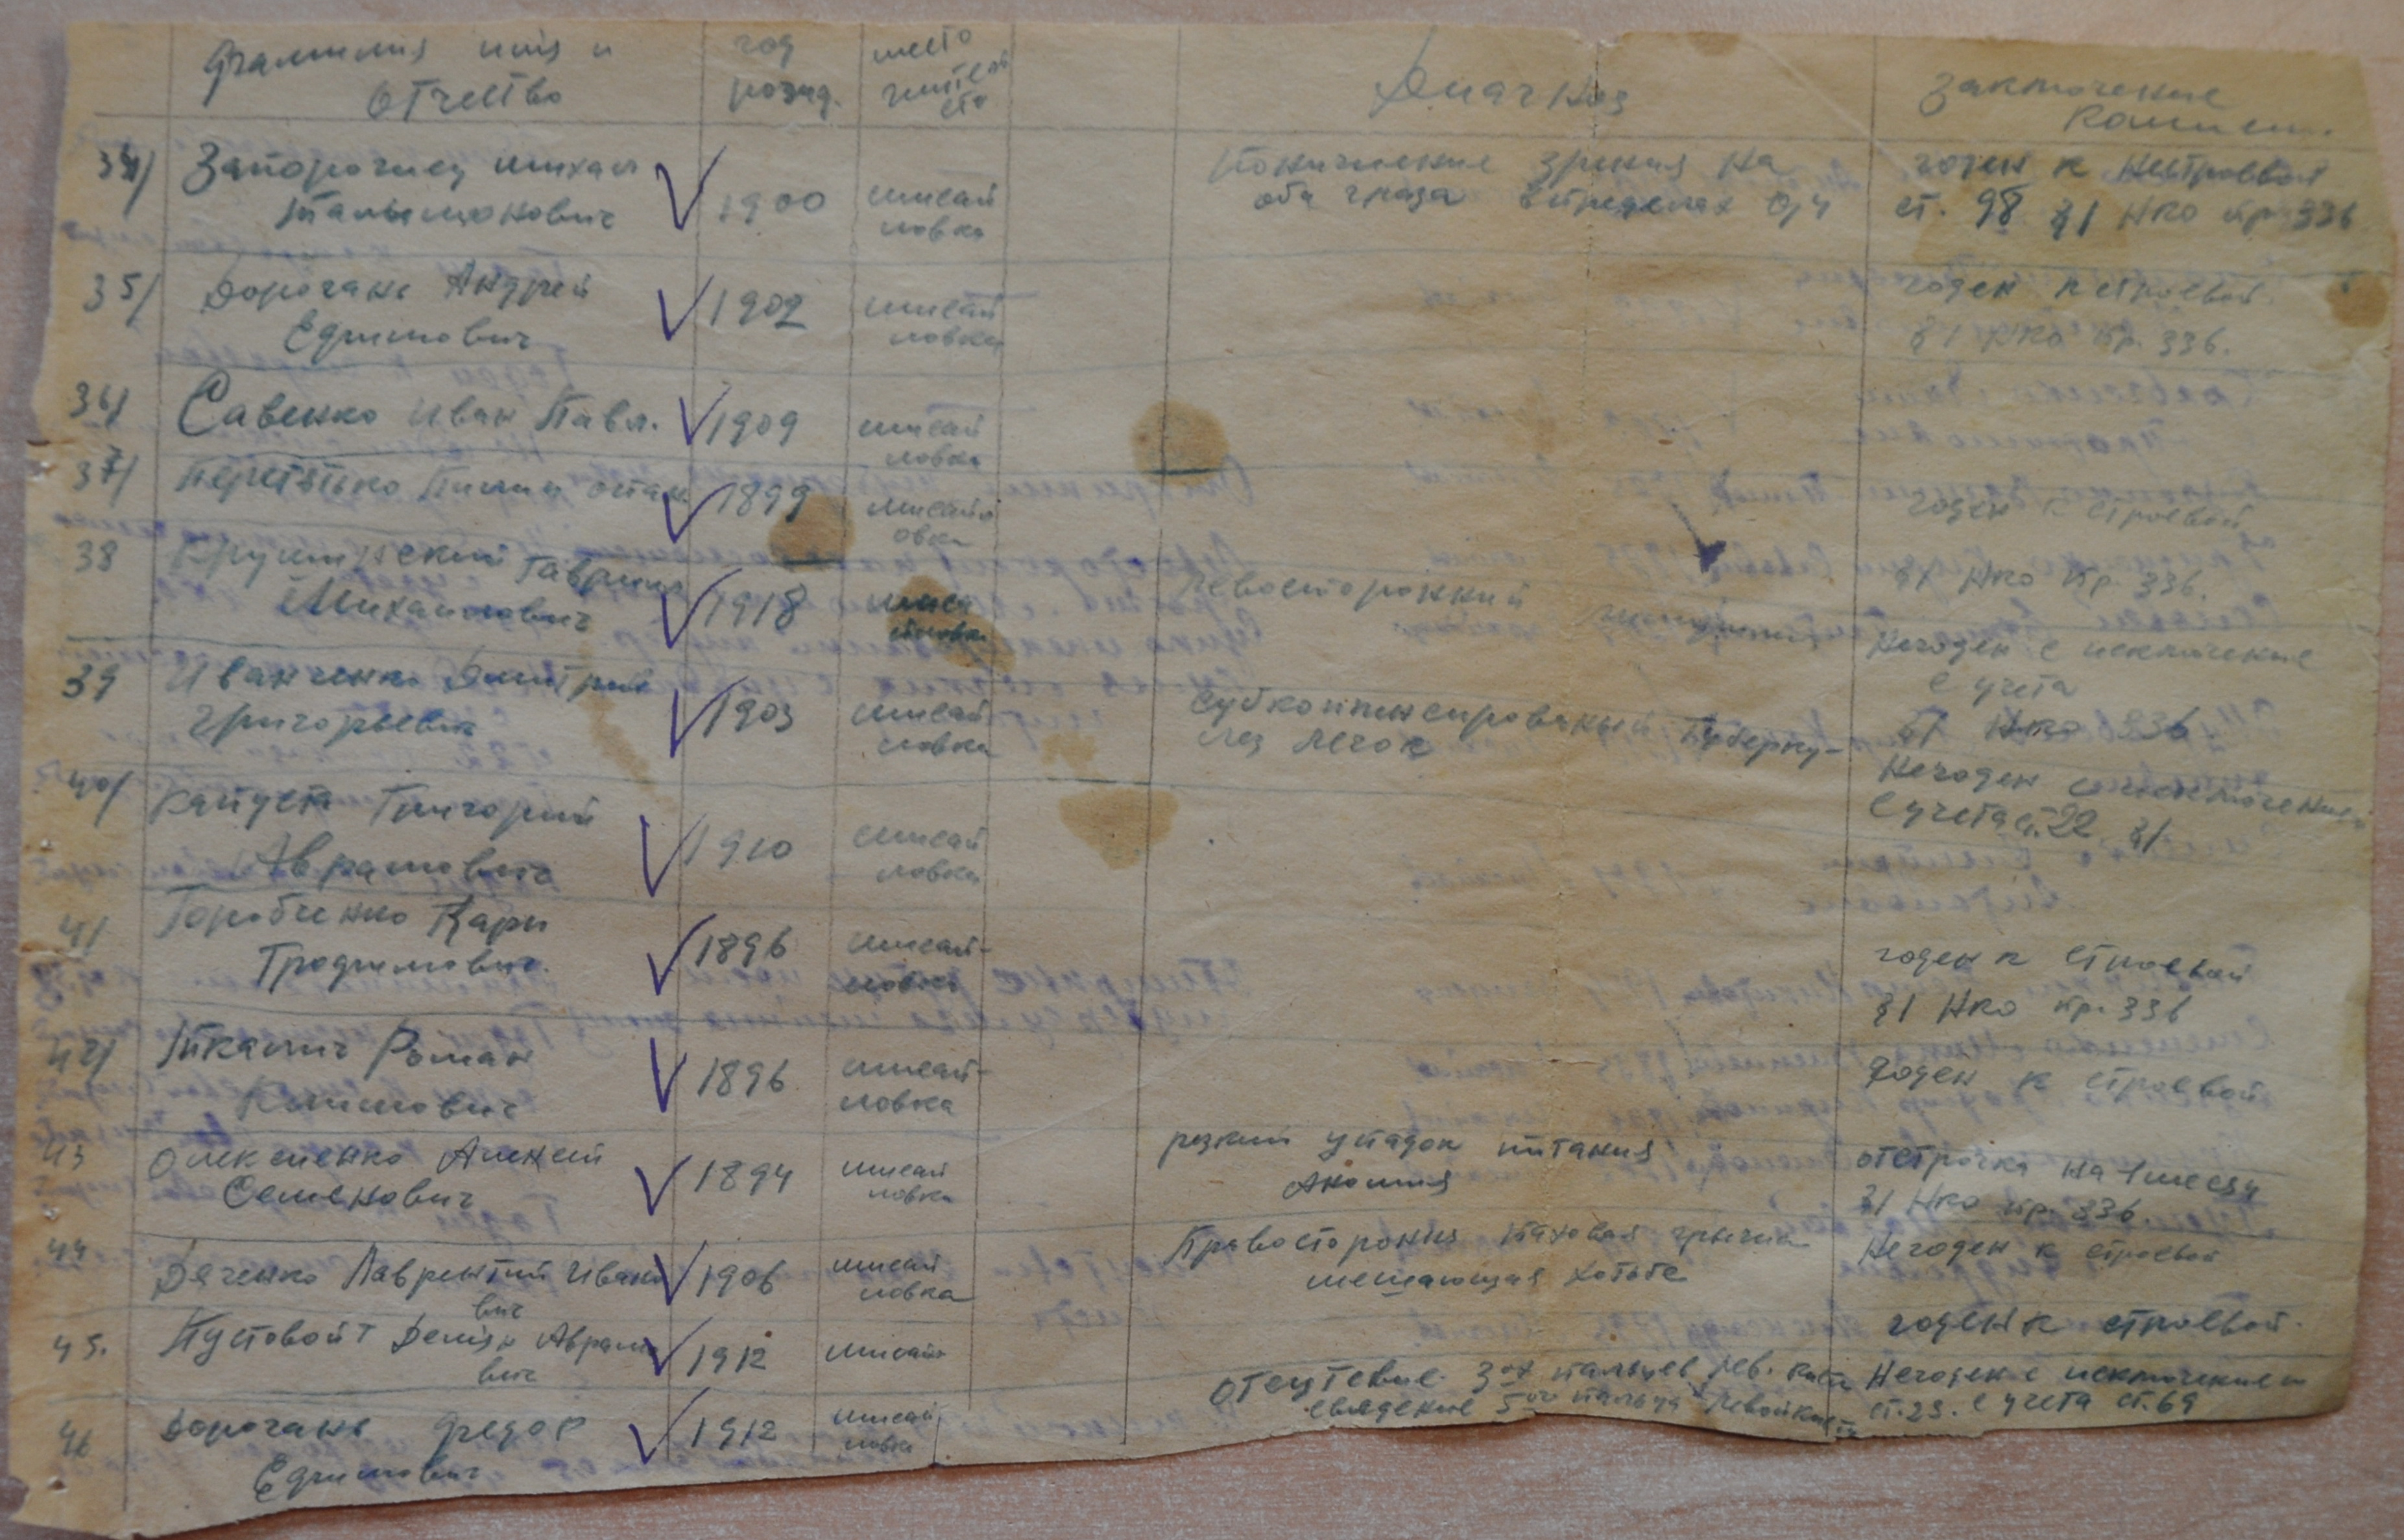 Фамилия имя и
отчество
год
рожд.
место
жител
ст
Диагноз
Заключение
Комисии.
34/ Запорожец Михаил
1900
мисай
ловка
Понижение зрения на
оба глаза впределах 0,4
годен к нестроевой
ст. 98 §1 НКО пр. 336
35/ Дорогань Андрей
Ефимович
1902
мисай
ловка
годен к строевой
§1 НКО пр. 336.
36/ Савенко Иван Павл.
1909
мисай
ловка
37/ Перетятько
1899
мисайл
овка
годен к строевой
§1 НКО пр. 336.
38 Гаврил
Михайлович
1918
левосторонний
Негоден с исключение
с учета
§1 НКО 336
39 Иванченко Дмитрий
Григорьевич
1903
мисай
ловка
Субкомпенсированый Туберку-
лез легок
Негоден
с учета ст. 22 §1
40/ Капуста Григорий
Аврамович
1910
мисай
ловка
41 Горобченко Карп
Трофимович.
1896
мисай-
ловка
годен к строевой
§1 НКО пр. 336
42/ Ткачич Роман
Климович
1896
мисай-
ловка
Годен к строевой
43 Олексиенко Алексей
Семенович
1894
мисай
ловка
резкий упадок питания
отстрочка на 1 месяц
§1 НКО пр. 336.
44 Дяченко Лаврентий Ивано
вич
1906
мисай
ловка
Правостороння паховая грыжа
мешающая хотьбе
Негоден к строевой
45. Пустовойт Аврамо
вич
1912
мисайл
годен к строевой.
46 Дорогань Федор
Ефимович
1912
мисай
ловка
Отсутствие 3ох пальцев лев. кисти
сведение 5ого пальца левой кисти
Негоден с исключением
ст. 23. с учета ст. 69